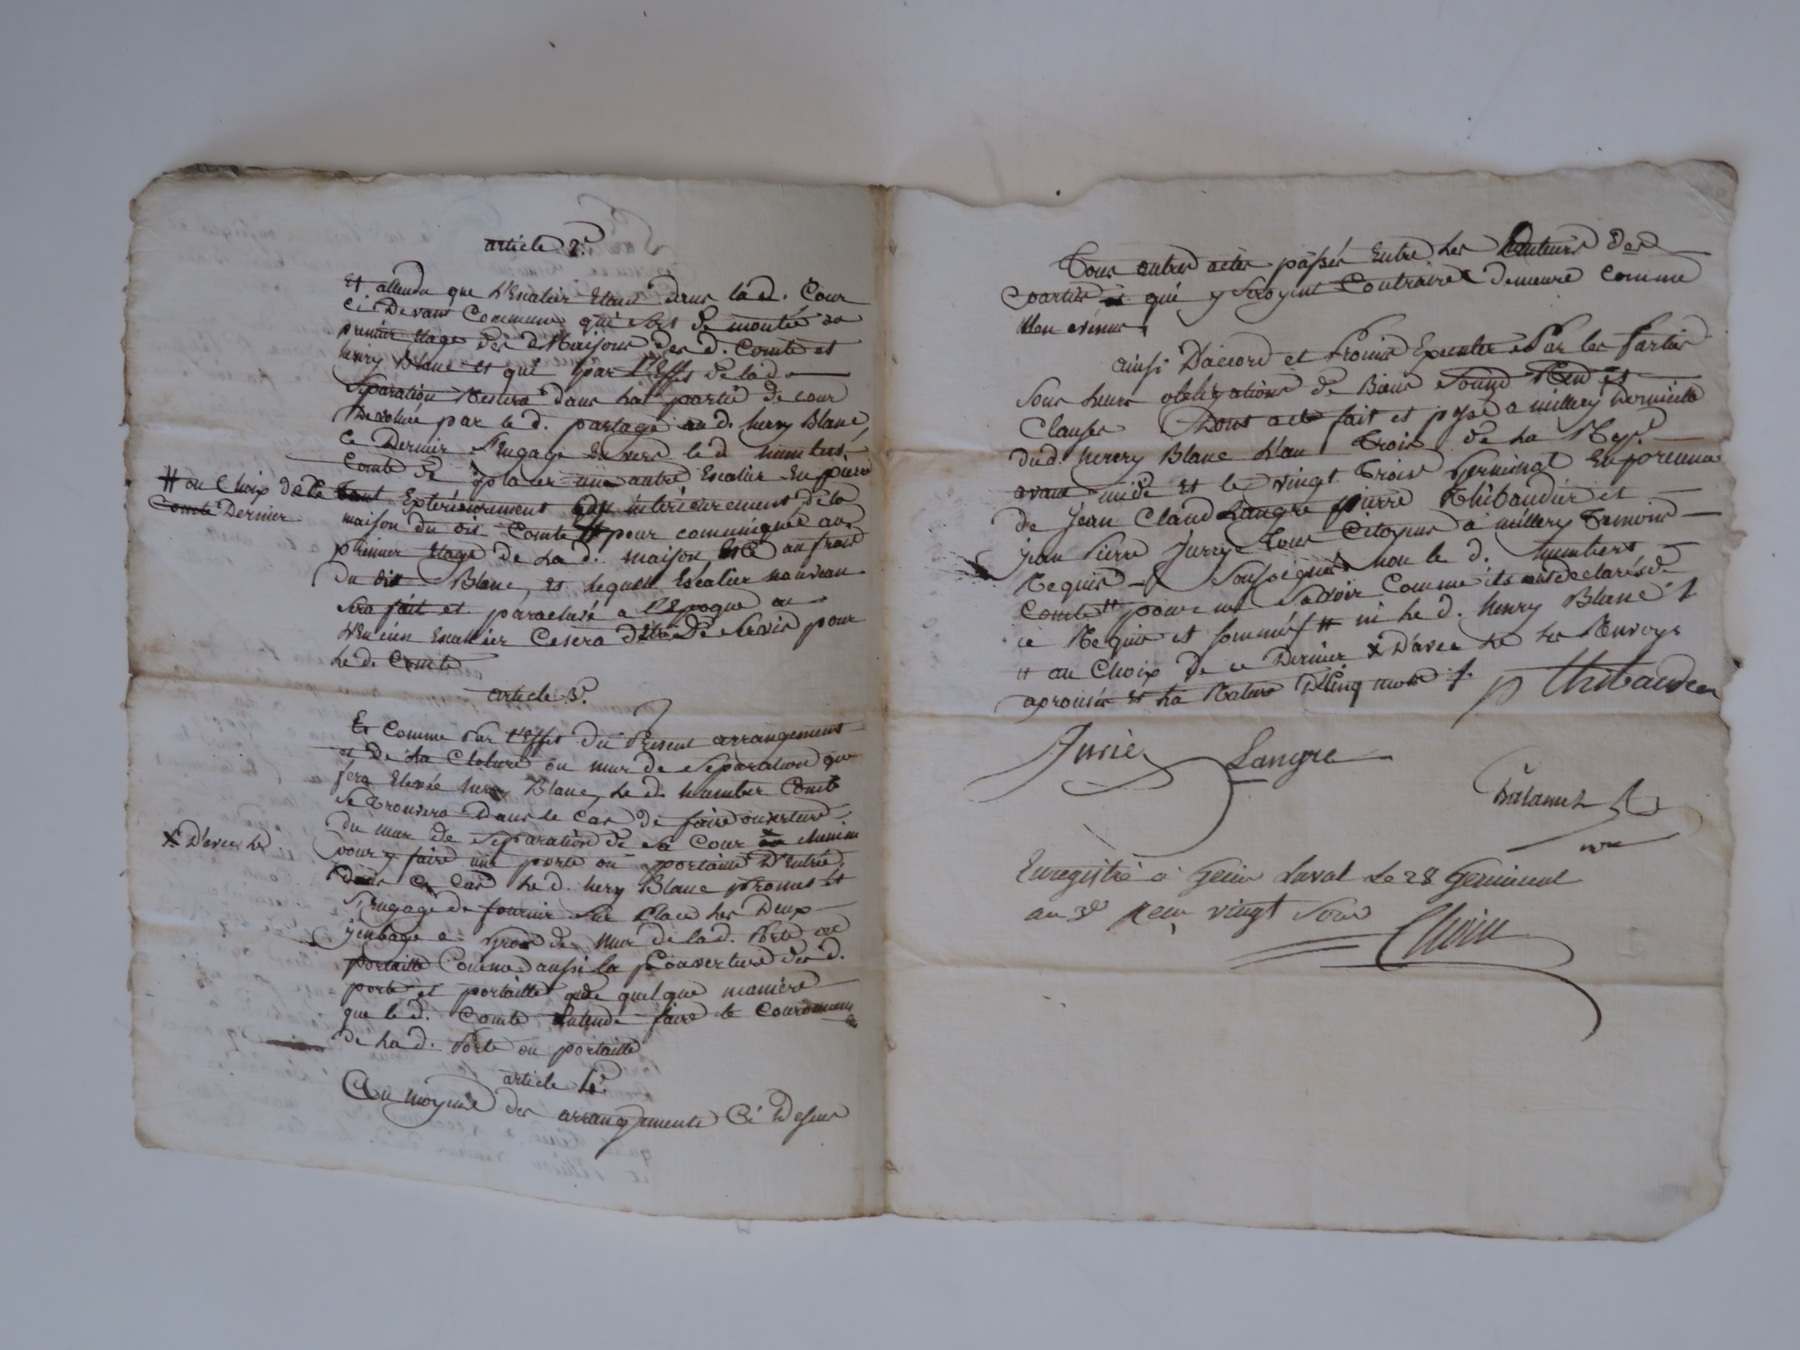 article 2.e
Et attendu que L'Escalier Etant dans la d. Cour
ci Devant Commune qui sert de montée au
premier Etage des d. Maisons des d. Comte et
henry Blanc et que par l'Effet de la d.
separation Restera dans la partie de cour
Devolue par le d. partage au d. henry Blanc,
ce Dernier s'Engage Envers le d. humbert
Comte de placer une autre Escalier En pierre
# ou Choix de Ce
Comte Dernier
tant Exterieurement qu'interieurement de la
maison du dit Comte # pour comuniquer au
premier Etage de La d. maison au frais
du dit Blanc, et lequel Escalier nouveau
sera fait et parachevé a L'Epoque ou
L'encien Escallier Cesera d'Etre de Servir pour
Le d. Comte
article 3.e
Et Comme Par l'Effet du Present arrangement
et de La Cloture ou mur de Separation que
fera Elevée henry Blanc, Le d. humber Comte
se trouvera Dans le Cas de faire ouverture
du mur de Separation de sa Cour chemin
X D'avec le
pour y faire une porte ou portaille D'Entrée
dans ce Cas Le d. hery Blanc promet et
s'Engage de fournir sur Place Les Deux
jenbage a gros de mur de la d. Porte ou
portaille Comme aussi la Couverture des d.
porte et portaille de quelque maniere
que le d. Comte Entende faire le Couronnem
de La d. Porte ou portaille
article 4.e
Au moyens des arrangements Ci Desus
Tous autres actes passés Entre Les auteurs des
parties qui y seroyent Contraire demeure comme
Non avenus
ainsi D'accord et Promis Executer Par les Parties
Sous Leurs obligations de Biens Soumis Ren et
Clauses Dont acte fait et passé a millery Domicille
du d. henery Blanc L'an Trois de La Rep.
avant midi Et le vingt Trois Germinal En presence
de Jean Claud Langre pierre Thibaudier et
jean Pierre Jurry tous Citoyens a millery Temoins
Requis Soussignés non le d. humbert
Comte pour ne Savoir Comme ils ont declarés de
ce Requis et sommés # ni Le d. henry Blanc
# au Choix de ce Dernier X D'avec Le Les Renvoys
aprouvés Et La Rature De Cinq mots
p Thibaudier
Jurie
Langre
Enregistré à Genis Laval Le 28 Germinal
an 3e Reçu vingt Sous